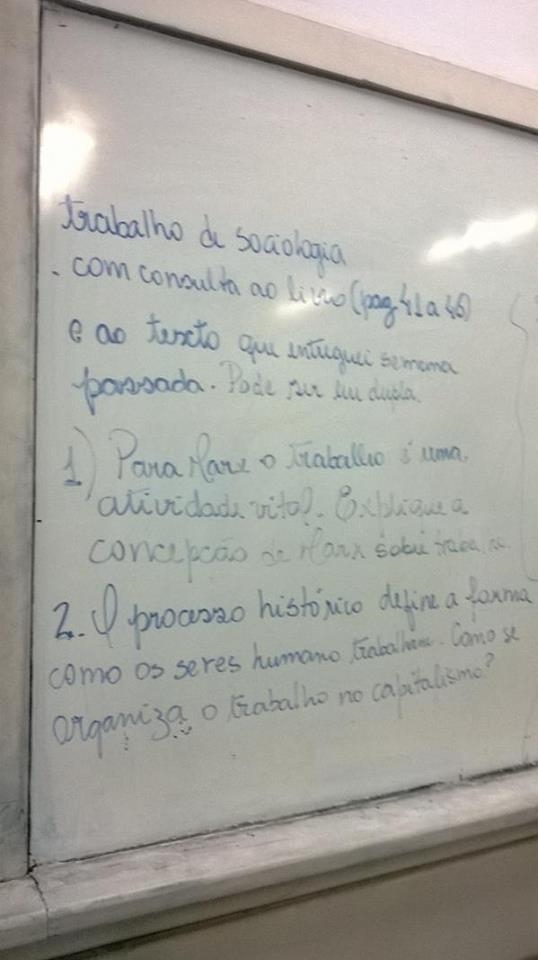 trabalho de sociologia
. com consulta ao livro (pag 41 a 46)
e ao texto que entreguei semana
passada. Pode ser em dupla.
1) Para Marx o trabalho é uma
atividade vital. Explique a
concepção de Marx sobre
2. O processo histórico define a forma
como os seres humano trabalham. Como se
organiza o trabalho no capitalismo?